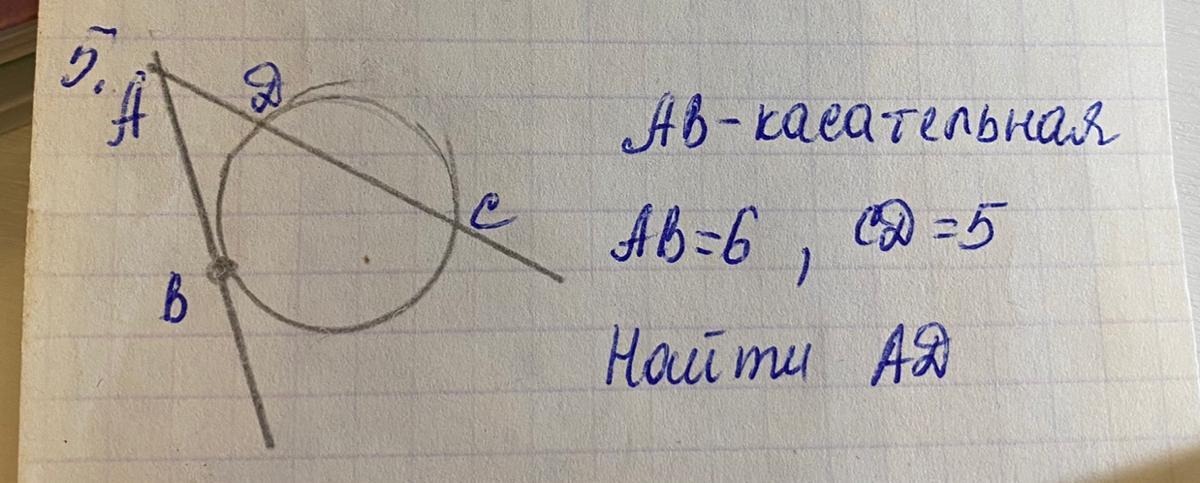 5.
A
D
C
B
AB-касательная
AB=6, CD=5
Найти AD